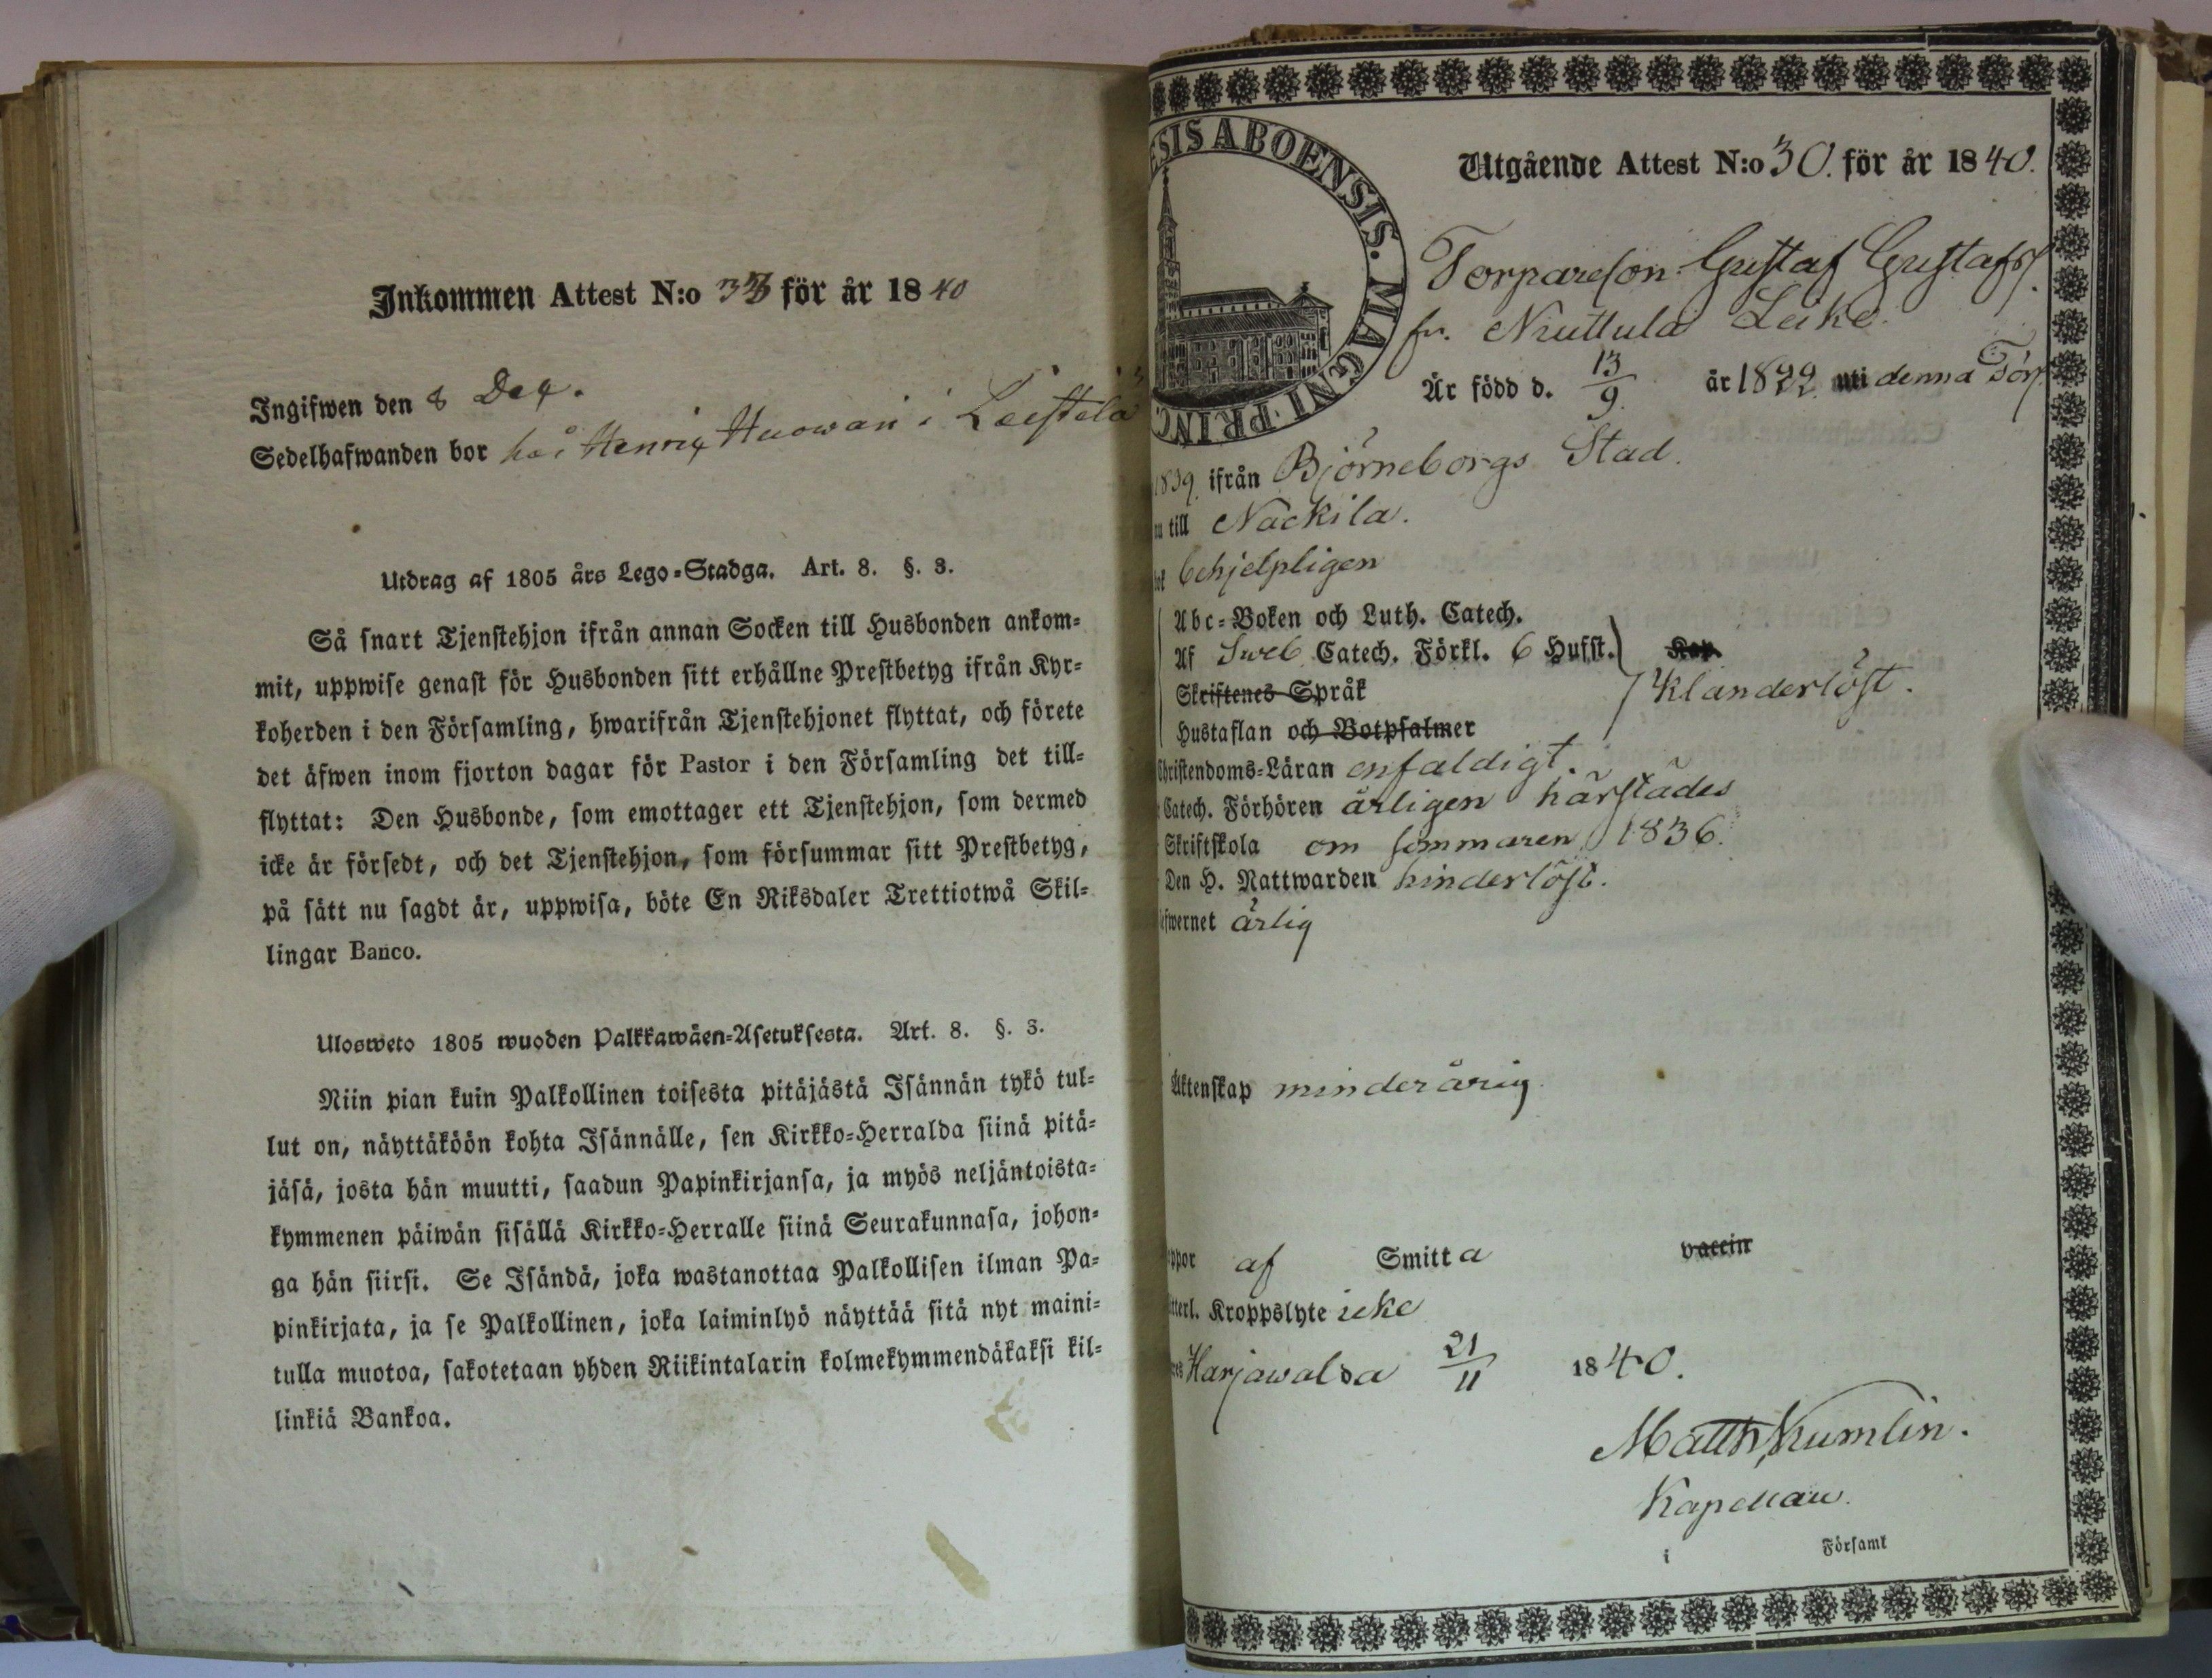 Inkommen Attest N:o 33 för år 1840
Ingifwen den 8 Dec.
Sedelhafwanden bor hoś Henrix Huowari i Leistelä
Utdrag af 1805 års Lego-Stadga. Art. 8. §. 3.
Så snart Tjenstehjon ifrån annan Socken till Husbonden ankom-
mit, uppwise genast för Husbonden sitt erhållne Prestbetyg ifrån Kyr-
koherden i den Församling, hwarifrån Tjenstehjonet flyttat, och förete
det äfwen inom fjorton dagar för Pastor i den Församling det till-
flyttat: Den Husbonde, som emottager ett Tjenstehjon, som dermed
icke är försedt, och det Tjenstehjon, som försummar sitt Prestbetyg,
på sätt nu sagdt är, uppwisa, böte En Riksdaler Trettiotwå Skil-
lingar Banco.
Ulosweto 1805 wuoden Palkkawäen-Asetuksesta. Art. 8. §. 3.
Niin pian kuin Palkollinen toisesta pitäjästä Isännän tykö tul-
lut on, näyttäköön kohta Isännälle, sen Kirkko-Herralda siinä pitä-
jäsä, josta hän muutti, saadun Papinkirjansa, ja myös neljäntoista-
kymmenen päiwän sisällä Kirkko-Herralle siinä Seurakunnasa, johon-
ga hän siirsi. Se Isändä, joka wastanottaa Palkollisen ilman Pa-
pinkirjata, ja se Palkollinen, joka laiminlyö näyttää sitä nyt maini-
tulla muotoa, sakotetaan yhden Riikintalarin kolmekymmendäkaksi kil-
linkiä Bankoa.
ESIS ABOENSIS. MAGNI PRINC
Utgående Attest N:o 30. för år 1840.
Torpareson Gustaf Gustafss.
fr. Niuttula
Är född d. 13/9. år 1822 uti denna Förs.
1839. ifrån Björneborgs Stad.
till Nackila.
behjelpligen
Abc-Boken och Luth. Catech.
Af Sweb Catech. Förkl. 6 Hufst.
Skriftenes Språk Klanderlöst.
Hustaflan och Botpsalmer
Christendoms-Läran enfaldigt.
Catech. Förhören årligen härstädes
Skriftskola om sommaren 1836.
Den H. Nattwarden hinderlöst.
efwernet ärlig
Äktenskap minderårig
ppor af Smitta vaccin
tterl. Kroppslyte icke
Harjawalda 21/11 1840.
Matth. Kumlin.
Kapellan.
i Församl